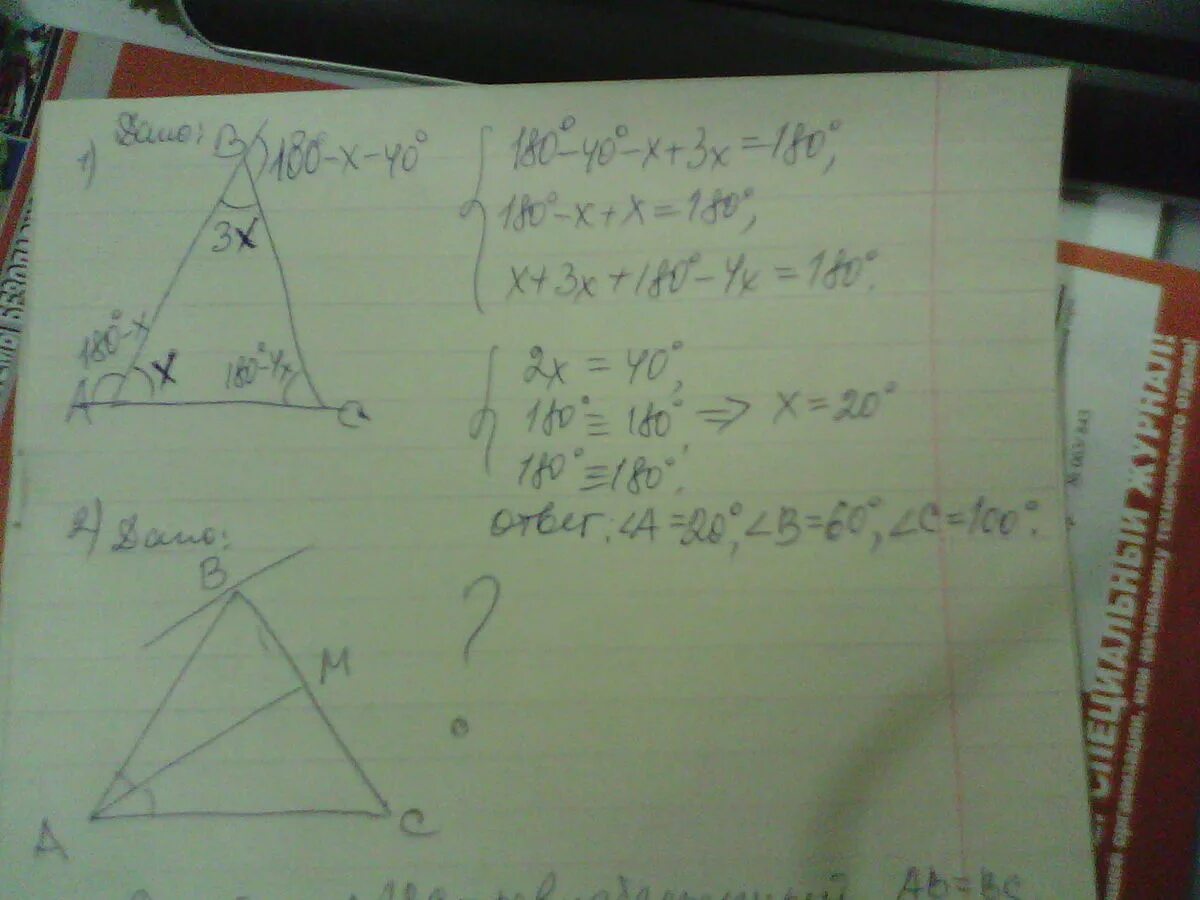 1) Дано:
B 180°-x-40°
3x
180°-x
x
180°-4x
A
C
180°-40°-x+3x=180°,
180°-x+x=180°,
x+3x+180°-4x=180°.
2x=40°,
180°≡180° => x=20°
180°≡180°.
ответ: ∠A=20°, ∠B=60°, ∠C=100°.
2) Дано:
B
M
?
A
C
AB=BC
СПЕЦИАЛЬНЫЙ ЖУРНАЛ!